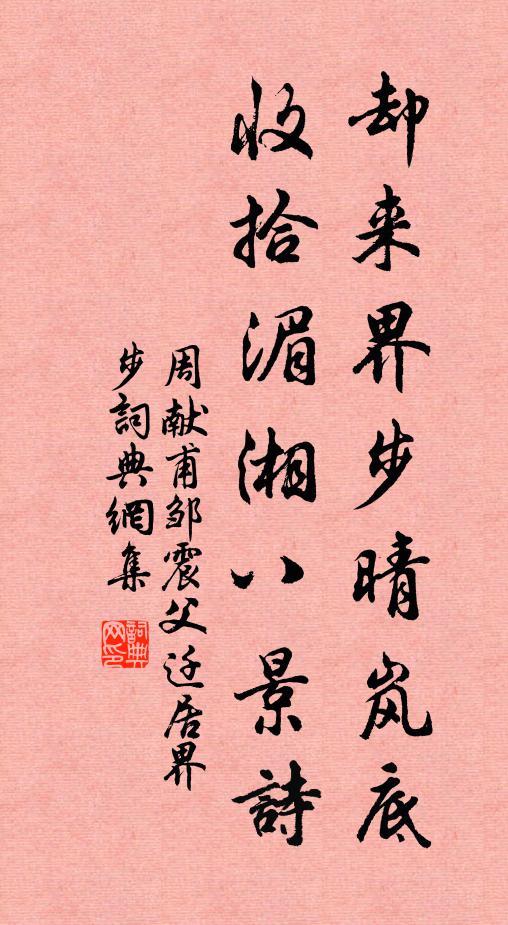 却来界步晴岚底
收拾湄湘八景詩
周献甫邹震父迁居界
步詞典網集
詞典网印